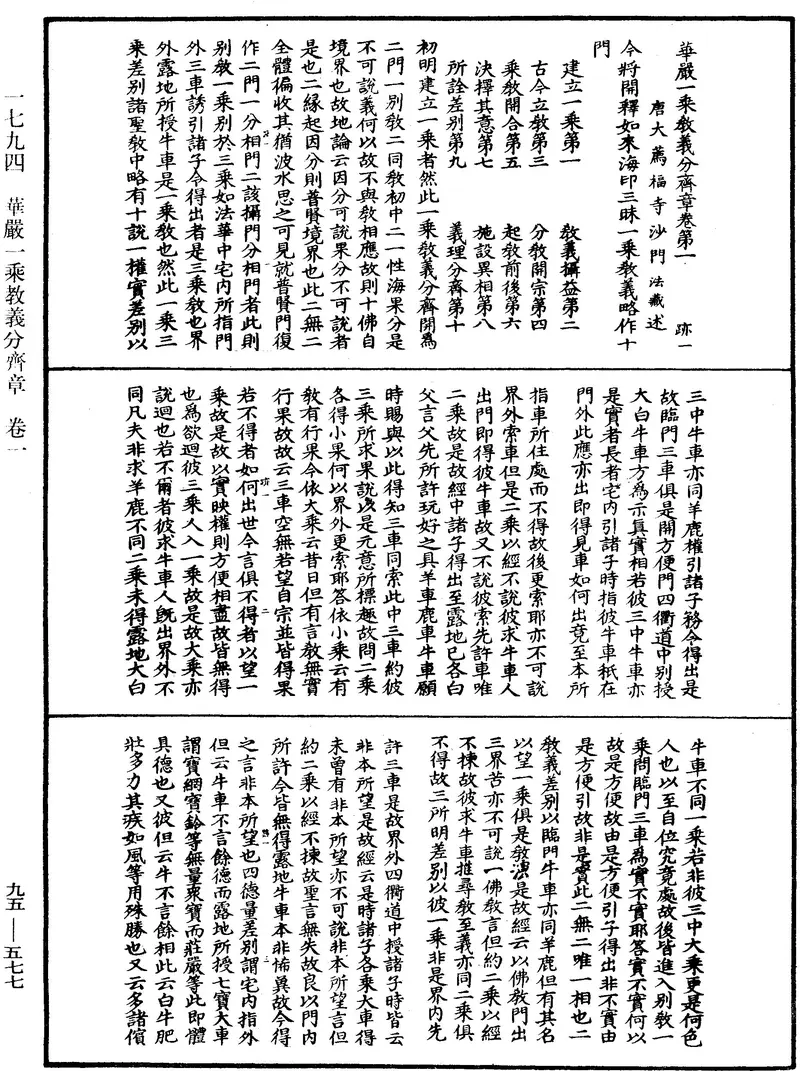 華嚴一乘教義分齊章卷第一　跡一
唐大薦福寺沙門法藏述
今將開釋如來海印三昧一乘教義略作十
門
建立一乘第一　教義攝益第二
古今立教第三　分教開宗第四
乘教開合第五　起教前後第六
決擇其意第七　施設異相第八
所詮差別第九　義理分齊第十
初明建立一乘者然此一乘教義分齊開為
二門一別教二同教初中二一性海果分是
不可說義何以故不與教相應故則十佛自
境界也故地論云因分可說果分不可說者
是也二緣起因分則普賢境界也此二無二
全體徧收其猶波水思之可見就普賢門復
作二門一分相門二該攝門分相門者此則
別教一乘別於三乘如法華中宅內所指門
外三車誘引諸子令得出者是三乘教也界
外露地所授牛車是一乘教也然此一乘三
乘差別諸聖教中略有十說一權實差別以
三中牛車亦同羊鹿權引諸子務令得出是
故臨門三車俱是開方便門四衢道中別授
大白牛車方為示真實相若彼三中牛車亦
是實者長者宅內引諸子時指彼牛車秖在
門外此應亦出即得見車如何出竟至本所
指車所住處而不得故後更索耶亦不可說
界外索車但是二乘以經不說彼求牛車人
出門即得彼牛車故又不說彼索先許車唯
二乘故是故經中諸子得出至露地已各白
父言父先所許玩好之具羊車鹿車牛車願
時賜與以此得知三車同索此中三車約彼
三乘所求果說以是元意所標趣故問二乘
各得小果何以界外更索耶答依小乘云有
教有行果今依大乘云昔日但有言教無實
行果故故云三車空無若望自宗並皆得果
若不得者如何出世今言俱不得者以望一
乘故是故以實映權則方便相盡故皆無得
也為欲迴彼三乘人入一乘故是故大乘亦
說迴也若不爾者彼求牛車人既出界外不
同凡夫非求羊鹿不同二乘未得露地大白
牛車不同一乘若非彼三中大乘更是何色
人也以至自位究竟處故後皆進入別教一
乘問臨門三車為實不實耶答實不實何以
故是方便故由是方便引子得出非不實由
是方便引故非是實此二無二唯一相也二
教義差別以臨門牛車亦同羊鹿但有其名
以望一乘俱是教溈是故經云以佛教門出
三界苦亦不可說一佛教言但約二乘以經
不揀故彼求牛車推尋教至義亦同二乘俱
不得故三所明差別以彼一乘非是界內先
許三車是故界外四衢道中授諸子時皆云
非本所望是故經云是時諸子各乘大車得
未曾有非本所望亦不可說非本所望言但
約二乘以經不揀故聖言無失故良以門內
所許今皆無得露地牛車本非悕異故今得
之言非本所望也四德量差別謂宅內指外
但云牛車不言餘德而露地所授七寶大車
謂寶網寶鈴等無量衆寶而莊嚴等此即體
具德也又彼但云牛不言餘相此云白牛肥
壯多力其疾如風等用殊勝也又云多諸儐
一七九四　華嚴一乘教義分齊章　卷一
九五——五七七